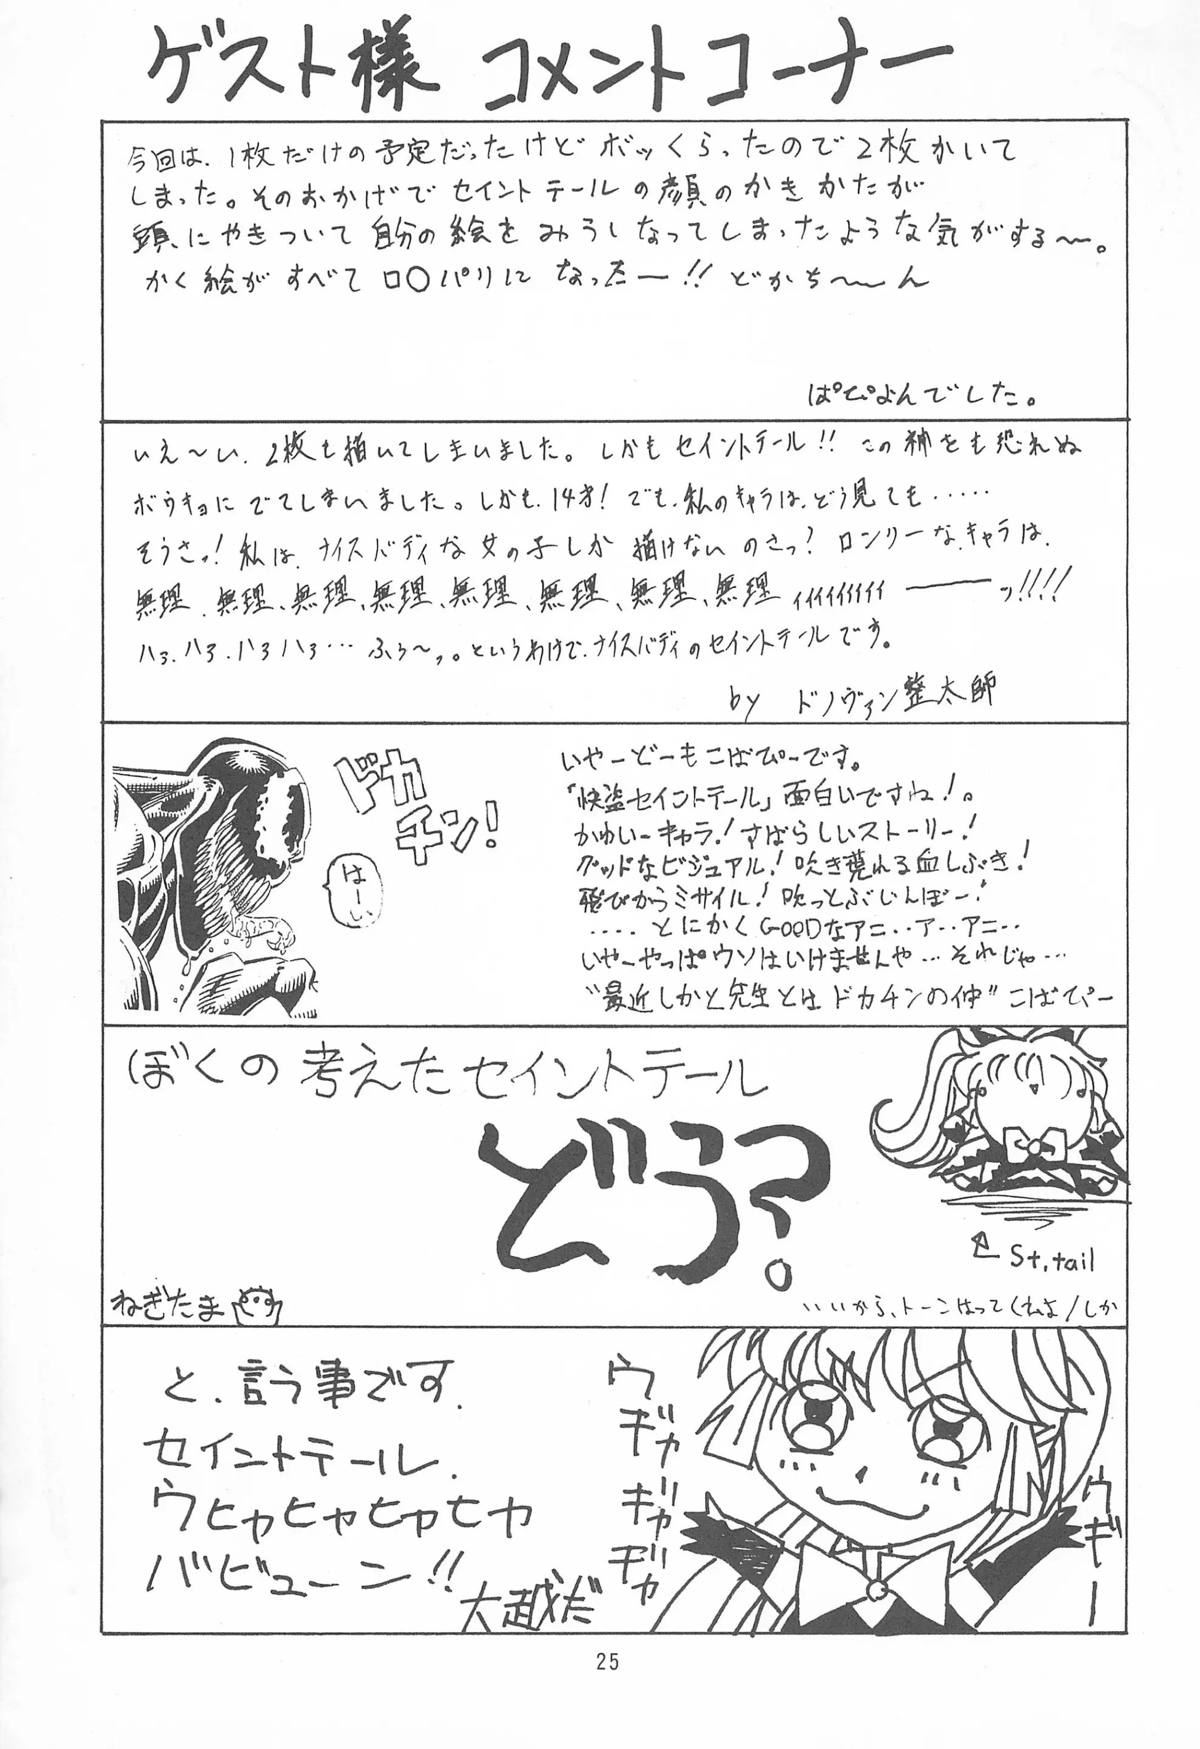 ゲスト様 コメントコーナー
今回は、1枚だけの予定だったけどボッくらったので2枚かいて
しまった。そのおかげでセイントテールの顔のかきかたが
頭にやきついて自分の絵をみうしなってしまったような気がする〜。
かく絵がすべてロ〇パリになったー!! どかち〜〜ん
ぱぴよんでした。
いえ〜い、2枚も描いてしまいました。しかもセイントテール!! この神をも恐れぬ
ボウキョにでてしまいました。しかも、14才! でも、私のキャラは、どう見ても・・・・・
そうさッ! 私は、ナイスバディな女の子しか描けないのさっ? ロンリーな、キャラは、
無理、無理、無理、無理、無理、無理、無理、無理ィィィィィィィィ―――ッ!!!!
ハァ、ハァ、ハァハァ… ふぅ〜っ。というわけで、ナイスバディのセイントテールです。
by ドノヴァン整太師
ドカチン!
はーい
いやーどーもこばぴーです。
「快盗セイントテール」面白いですね!。
かわいーキャラ! すばらしいストーリー!
グッドなビジュアル! 吹き荒れる血しぶき!
飛びかうミサイル! 吹っとぶじんぼー!
・・・・とにかくGOODなアニ・・ア・・アニ・・
いやーやっぱウソはいけませんや…それじゃ…
"最近しかと先生とはドカチンの仲" こばぴー
ぼくの考えたセイントテール
どう?
St.tail
ねぎたま
いいから、トーンはってくれよ/しか
と、言う事です。
セイントテール、
ウヒャヒャヒャヒャ
バビューン!!
大越だ
ウギャギャギャ
ウギー
25